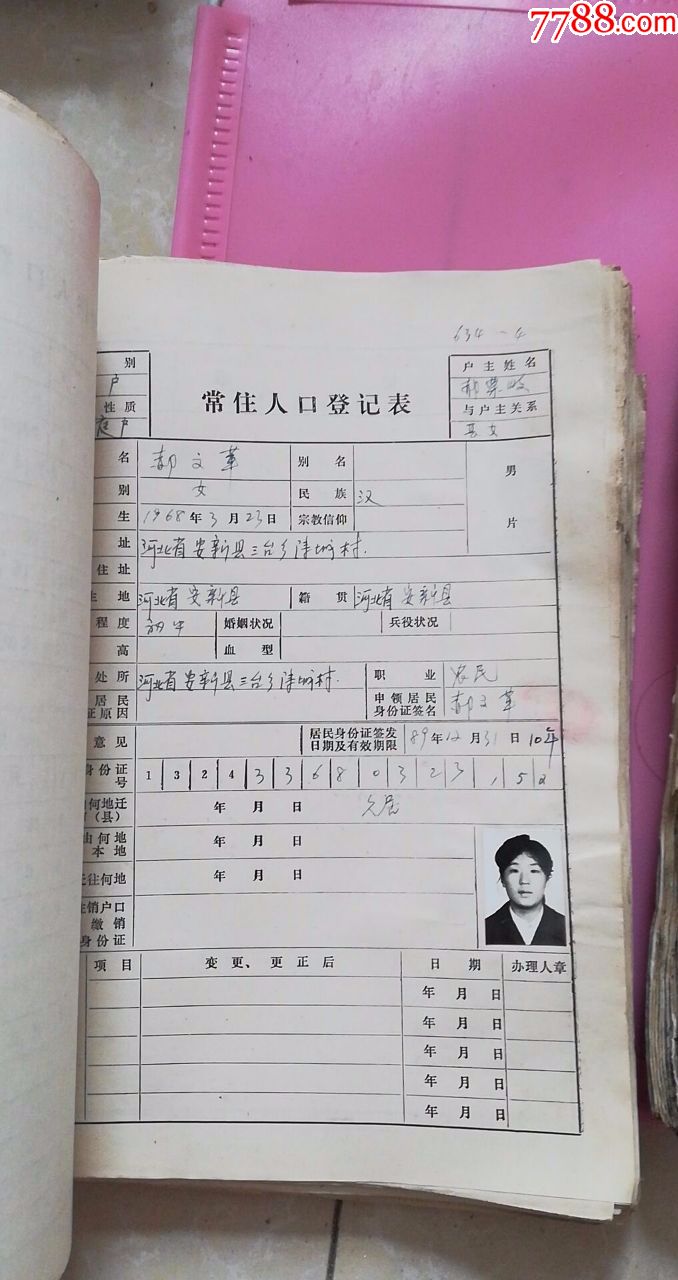 7788.com
634-4
别
户
性质
庭户
常住人口登记表
户主姓名
与户主关系
长女
名 郝文革 别名
别 女 民族 汉
男
片
生 1968年3月23日 宗教信仰
址 河北省安新县三台乡 村.
住址
生地 河北省安新县 籍贯 河北省安新县
程度 初中 婚姻状况 兵役状况
高 血型
处所 河北省安新县三台乡 村. 职业 农民
居民
证原因
申领居民
身份证签名 郝文革
意见 居民身份证签发
日期及有效期限 89年12月31日 10年
身份证
号 1 3 2 4 3 3 6 8 0 3 2 3 , 5 2
由何地迁
(县) 年 月 日 久居
由何地
本地 年 月 日
迁往何地 年 月 日
注销户口
缴销
身份证
项目 变更、更正后 日期 办理人章
年 月 日
年 月 日
年 月 日
年 月 日
年 月 日